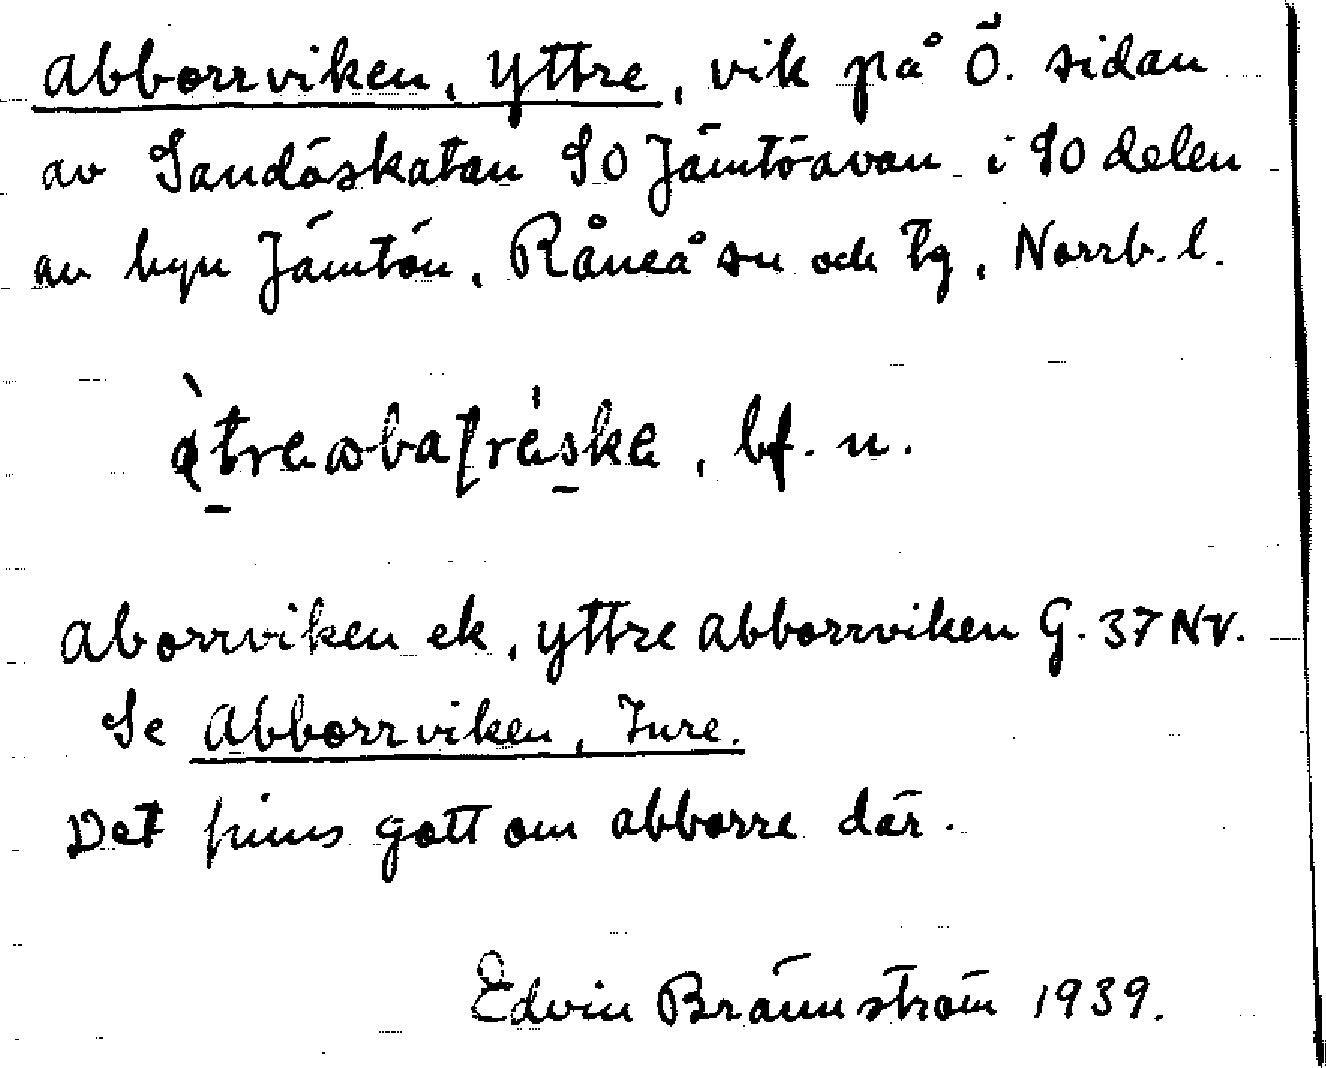 Abborrviken, Yttre, vik på Ö. sidan
av Sandöskatan SO Jämtöavan i SO delen
av byn Jämtön, Råneå sn och tg, Norrb. l.
bf. n.
Aborrviken ek, Yttre Abborrviken G. 37 NV.
Se Abborrviken, Inre.
Det finns gott om abborre där.
Edvin Brännström 1939.